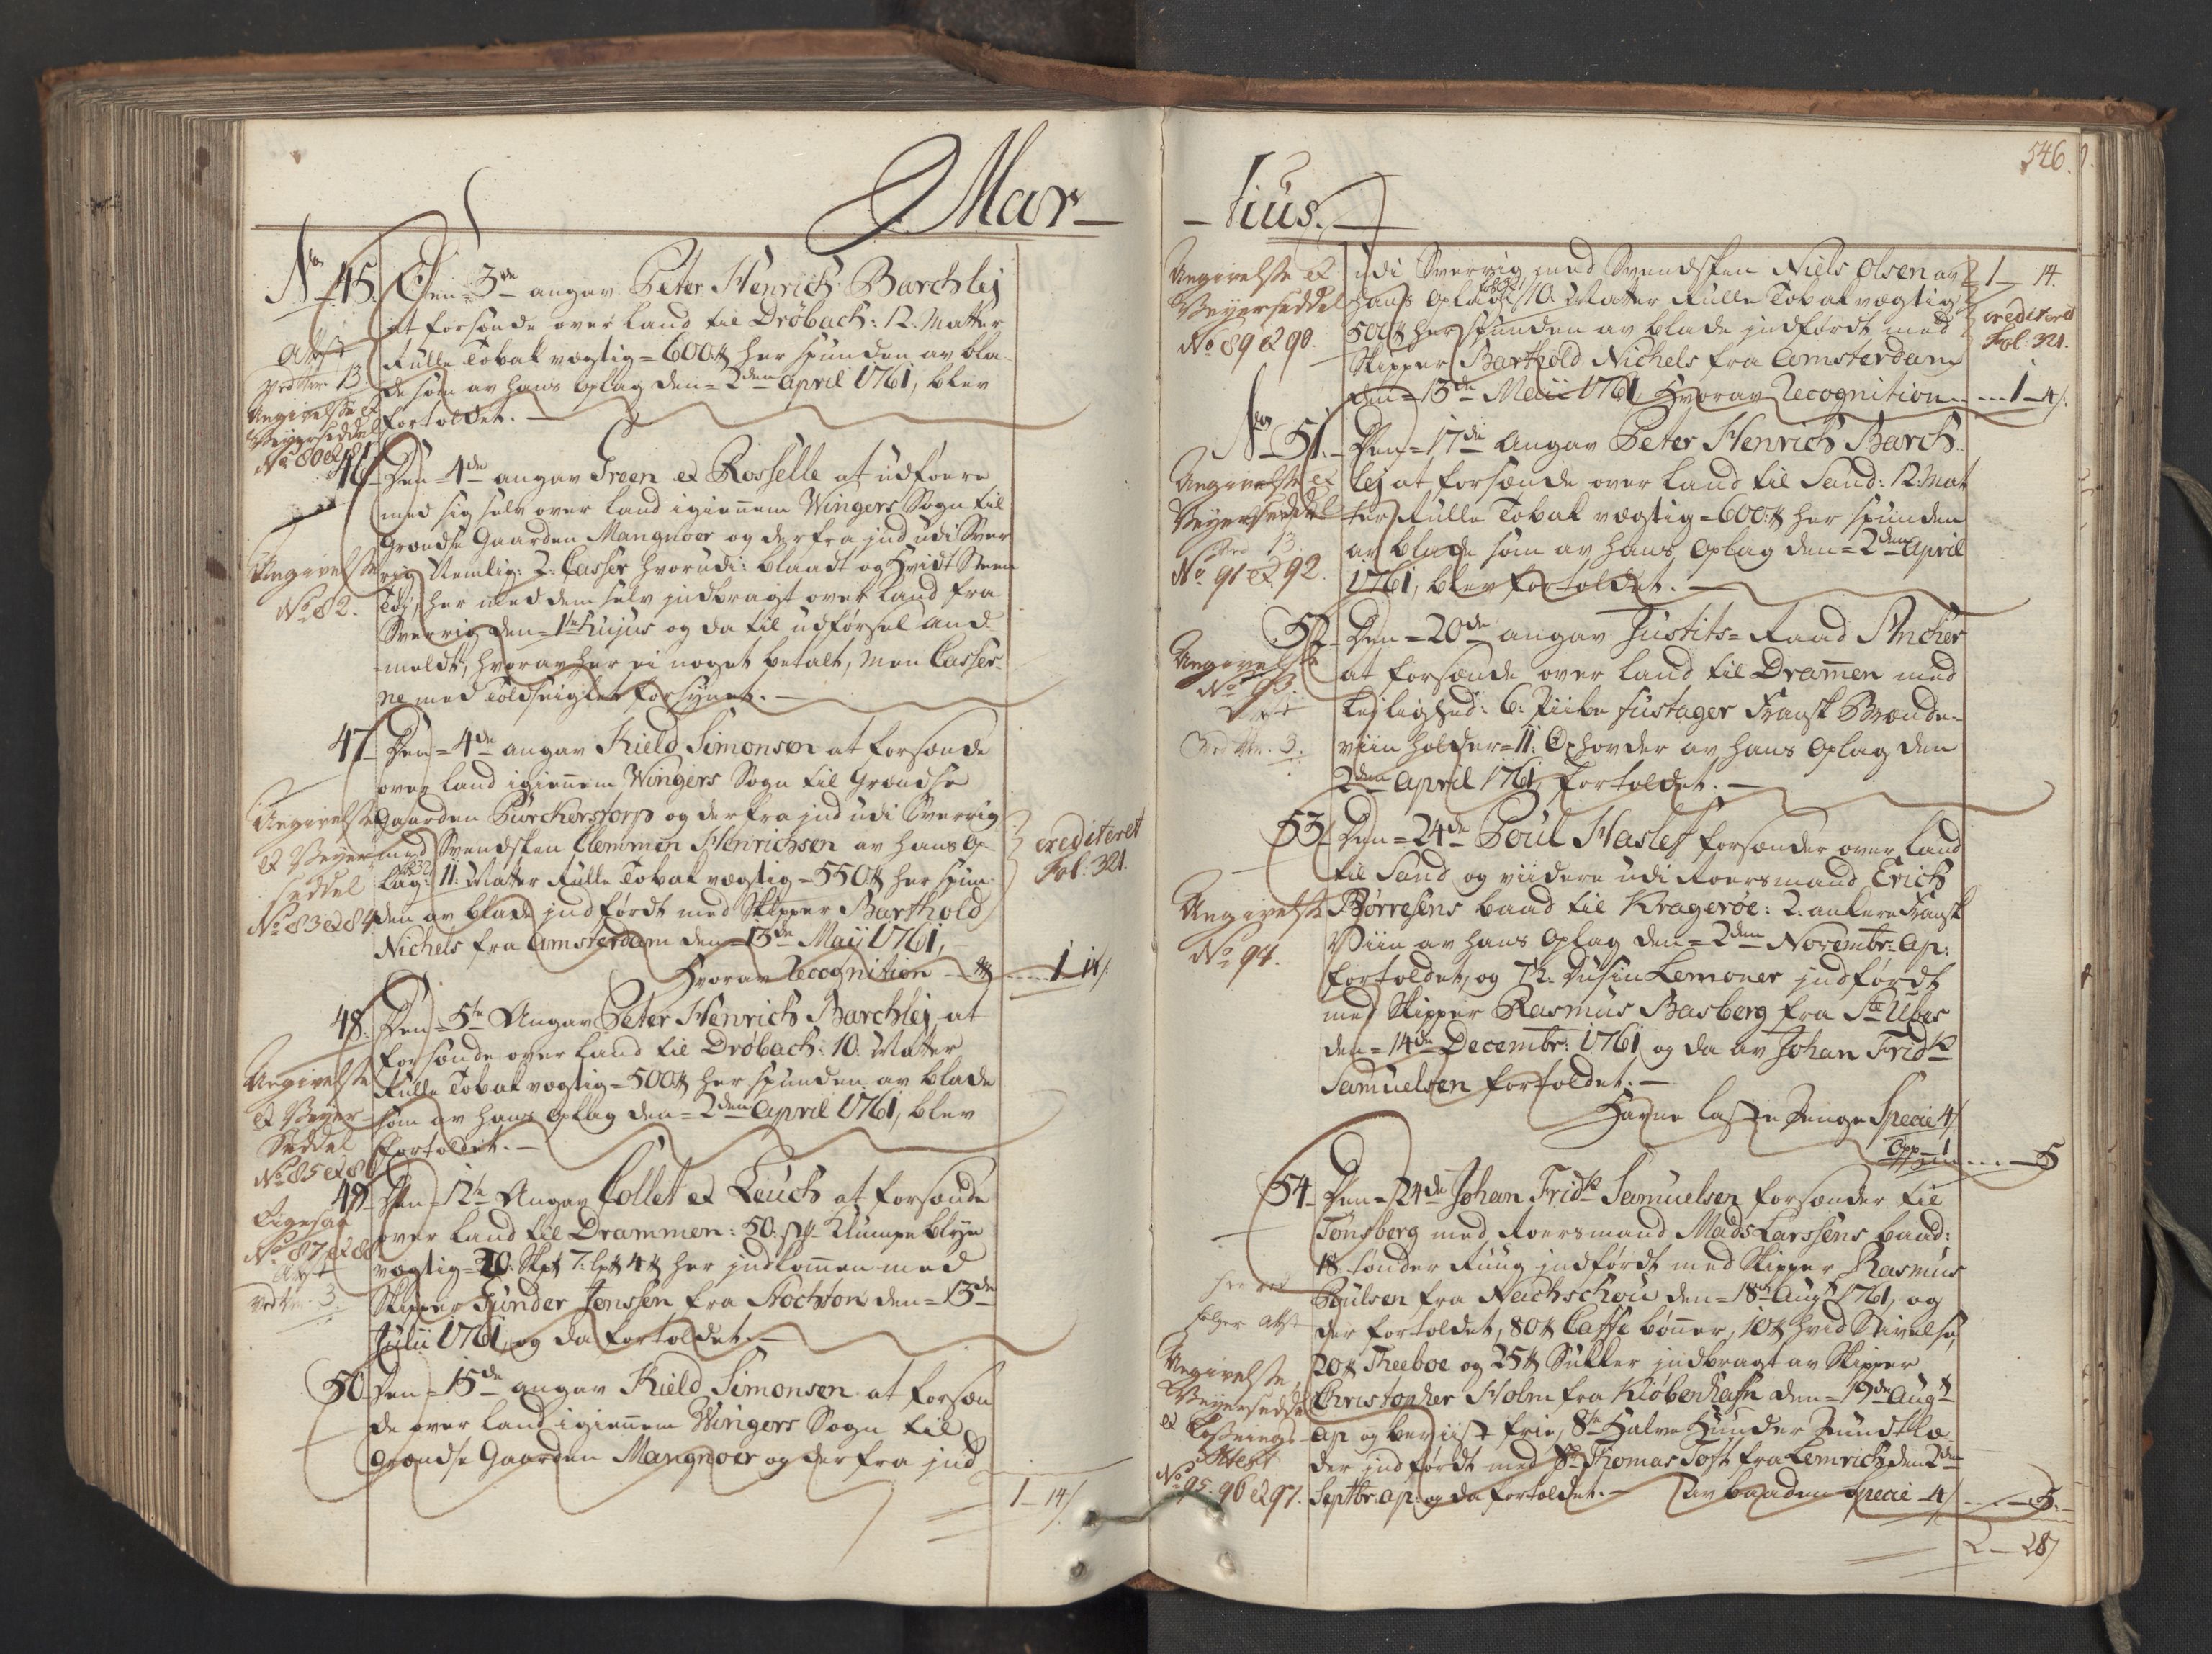 Mar-
No 45. Den 3de angav Peter Henrich Barchlej
at forsende over Land til Drøbach: 12. Matter
Rulle Tobak vægtig = 600 ℔ her spunden av bla-
de som av hans Oplag den = 2den April 1761, blev
fortoldet.
Attest
ved No. 13.
Angivelse et
Veyerseddel
No 80 et 81
46 Den = 4de angav Green et Rosselle at udføere
med sig selv over Land igiennem Wingers Sogn til
Grændse Gaarden Mangnoer og derfra ind udi Sver
rig Nemlig: 2. Casser hvorudi: blaadt og Hvidt Steen
Töy, her med dem selv indbragt over Land fra
Sverrig den = 1te hujus og da til udførsel and-
meldt, hvorav her ei noget betalt, men Casser-
ne med Toldseigler forsynet.
Angivelse
No 82.
47 Den = 4de angav Kield Simonsen at forsende
over Land igiennem Wingers Sogn til Grændse
Gaarden Burcherstorp og derfra ind udi Sverrig
med Svendsken Clemmen Henrichsen av hans Op-
lag: 11. Matter Rulle Tobak vægtig = 550 ℔ her spun-
den av blade indført med Skipper Barthold
Nichels fra Amsterdam den = 13de Maij 1761,
Hvorav Recognition - 1 14/
Angivelse
et Veyer
seddel
No 83 et 84
crediteret
Fol: 321.
48. Den = 5te Angav Peter Henrich Barchlej at
forsende over Land til Drøbach: 10. Matter
Rulle Tobak vægtig = 500 ℔ her spunden av blade
som av hans Oplag den = 2den April 1761, blev
fortoldet.
Angivelse
et Veyer
Seddel
No 85 et 86
49 Den = 12te Angav Collet et Leuch at forsende
over Land til Drammen: 50. st. Klumpe blye
vægtig = 20. Skp 7. lp 4 ℔ her indkommen med
Skipper Gunder Jenssen fra Stochton den = 13de
Julii 1761, og da fortoldet.
Ligesaa
No 87 et 88.
Attest
ved No. 3.
50 Den = 15de angav Kield Simonsen at forsen
de over Land igiennem Wingers Sogn til
Grændse Gaarden Mangnoer og derfra ind
1 - 14/
546.
-tius.
udi Sverrig med Svendsken Niels Olsen av 1 - 14.
hans Oplag: 10. Matter Rulle Tobak vægtig
500 ℔ her spunden av blade indført med
Skipper Barthold Nichels fra Amsterdam
den = 13de Maii 1761, Hvorav Recognition 1 - 4/.
Angivelse et
Veyerseddel
No 89 et 90.
crediteret
Fol: 321.
No 51. Den = 17de Angav Peter Henrich Barch
lej at forsende over Land til Sand: 12. Mat
ter Rulle Tobak vægtig = 600 ℔ her spunden
av blade som av hans Oplag den = 2den April
1761, blev fortoldet.
Angivelse et
Veyerseddel
No 91 et 92.
52 Den = 20de angav Justits-Raad Ancher
at forsende over Land til Drammen med
Lejlighed: 6. Piibe fustager Fransk Brænde-
viin holder = 11. Oxhovder av hans Oplag den
2den April 1761, fortoldet.
Angivelse
No 93.
ved No. 3.
53 Den = 24de Poul Haslef forsender over Land
til Sand og viidere udi Roersmand Erich
Børresens baad til Kragerøe: 2. ankere Fransk
Viin av hans Oplag den = 2den Novembr: ap:
fortoldet, og 72. Dusin Lemoner indført
med Skipper Rasmus Basberg fra St Ubes
den = 14de Decembr: 1761, og da av Johan Fridk
Samuelsen fortoldet.
Havne laste Penge Specie 4/
Opp 1 - 5
Angivelse
No 94.
54 Den = 24de Johan Fridk Samuelsen forsender til
Tønsberg med Roersmand Mads Larssens baad:
18. tønder Rug indført med Skipper Rasmus
Poulsen fra Nachschou den = 18de Augt 1761, og
der fortoldet, 80 ℔ Caffe bønner, 10 ℔ hvid Stivelse,
20 ℔ Theeboe og 25 ℔ Sukker indbragt av Skipper
Christopher Holm fra Kiøbenhafn den = 19de Augt
ap og beviist frie, 8te Halve Hunder Kundklæ
der indført med Sr Thomas Toft fra Lemvich den 2den
Septbr: ap: og da fortoldet. av baaden Specie 4/ - 5.
følger Attest
Angivelse,
Veyersedde
et Losnings-
Attest
No 95. 96 et 97.
2 - 28/